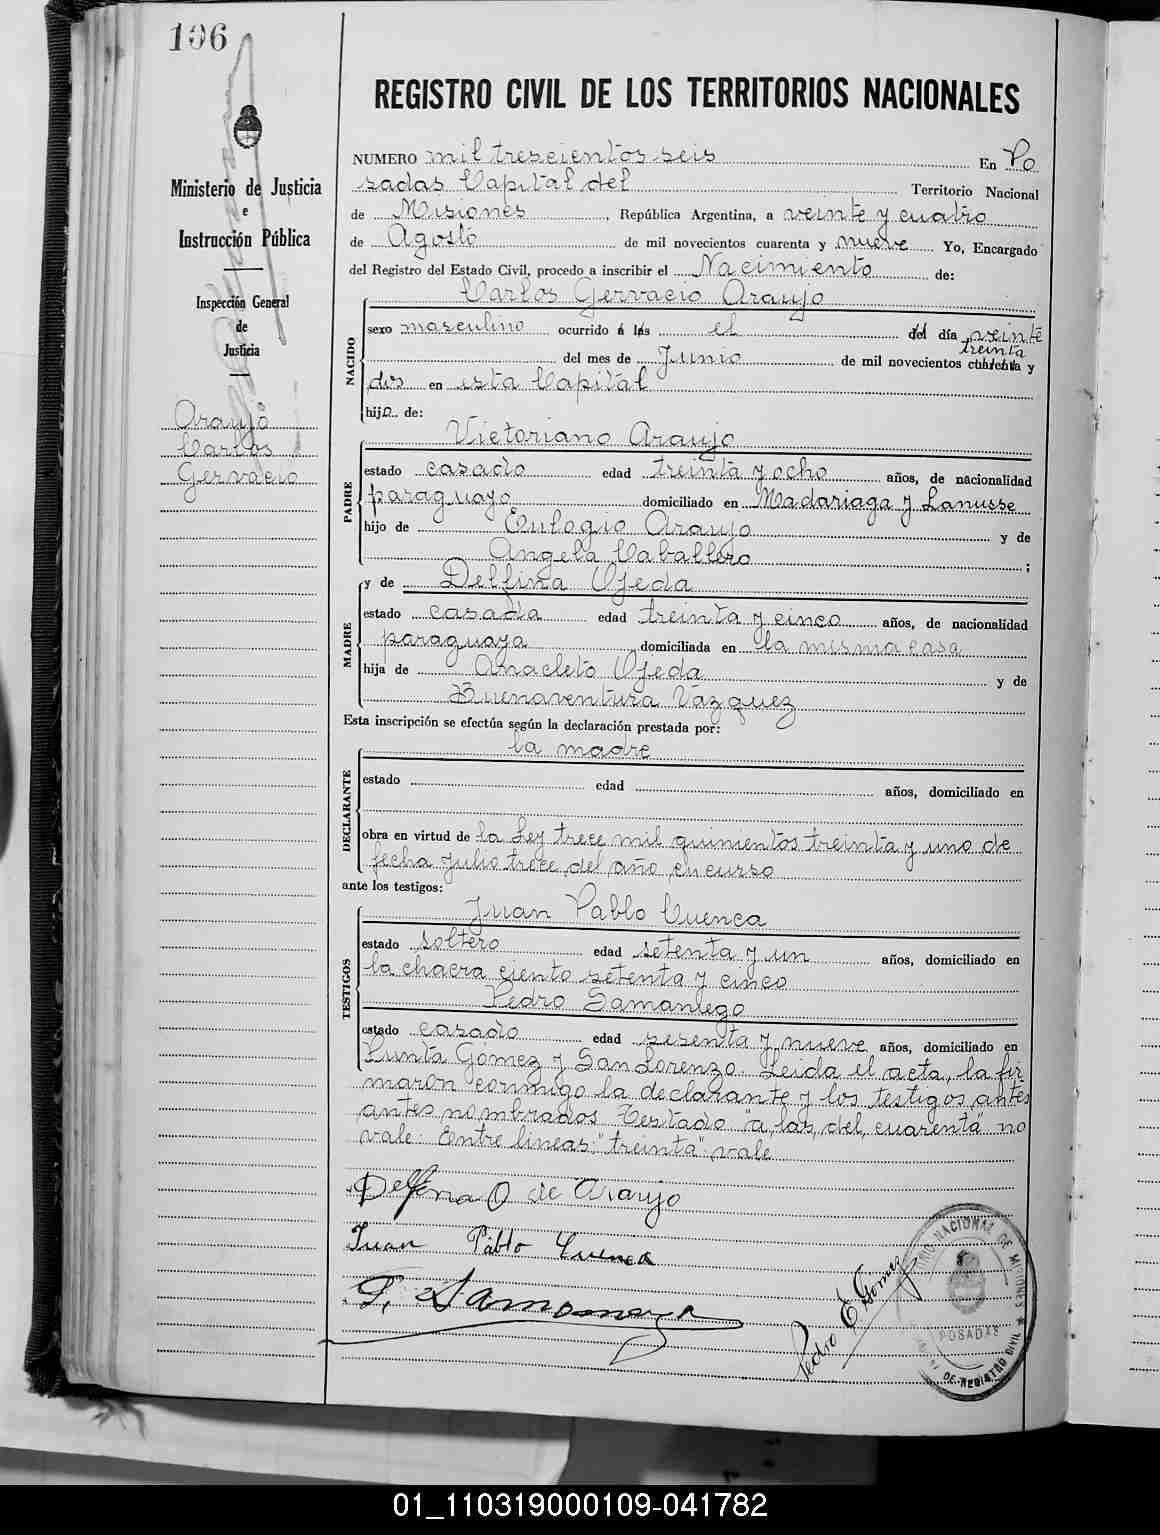 106
REGISTRO CIVIL DE LOS TERRITORIOS NACIONALES
Ministerio de Justicia
e
Instrucción Pública
Inspección General
de
Justicia
Araujo
Carlos
Gervacio
NUMERO mil trescientos seis En Po
sadas Capital del Territorio Nacional
de Misiones, República Argentina, a veinte y cuatro
de Agosto de mil novecientos cuarenta y nueve Yo, Encargado
del Registro del Estado Civil, procedo a inscribir el Nacimiento de:
Carlos Gervacio Araujo
NACIDO
sexo masculino ocurrido á lás el del día veinte
treinta
del mes de Junio de mil novecientos cuarenta y
dos en esta Capital
hijo de:
Victoriano Araujo
PADRE
estado casado edad treinta y ocho años, de nacionalidad
paraguayo domiciliado en Madariaga y Lanusse
hijo de Eulogio Araujo y de
Angela Caballero ;
y de Delfina Ojeda
MADRE
estado casada edad treinta y cinco años, de nacionalidad
paraguaya domiciliada en la misma casa
hija de Anacleto Ojeda y de
Buenaventura Vázquez
Esta inscripción se efectúa según la declaración prestada por:
la madre
DECLARANTE
estado edad años, domiciliado en
obra en virtud de la Ley trece mil quinientos treinta y uno de
fecha julio trece del año en curso
ante los testigos:
Juan Pablo Cuenca
TESTIGOS
estado soltero edad setenta y un años, domiciliado en
la chacra ciento setenta y cinco
Pedro Samaniego
estado casado edad sesenta y nueve años, domiciliado en
Punta Gómez y San Lorenzo. Leida el acta, la fir
maron conmigo la declarante y los testigos antes
antes nombrados Testado "a las, del, cuarenta" no
vale. Entre líneas: "treinta": vale
Delfina O de Araujo
Juan Pablo Cuenca
P. Samaniego
Pedro E Gomez
NACIONAL DE MISIONES
POSADAS
DE REGISTRO CIVIL
01_110319000109-041782